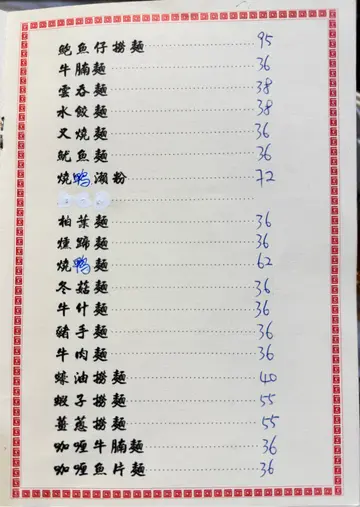 鮑魚仔撈麵 95
牛腩麵 36
雲吞麵 38
水餃麵 38
叉燒麵 36
魷魚麵 36
燒鸭瀨粉 72
柏葉麵 36
燻蹄麵 36
燒鸭麵 62
冬菇麵 36
牛什麵 36
豬手麵 36
牛肉麵 36
蠔油撈麵 40
蝦子撈麵 55
薑蔥撈麵 55
咖喱牛腩麵 36
咖喱魚片麵 36